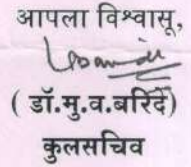 आपला विश्वासू,
( डॉ.मु.व.बरिदे)
कुलसचिव